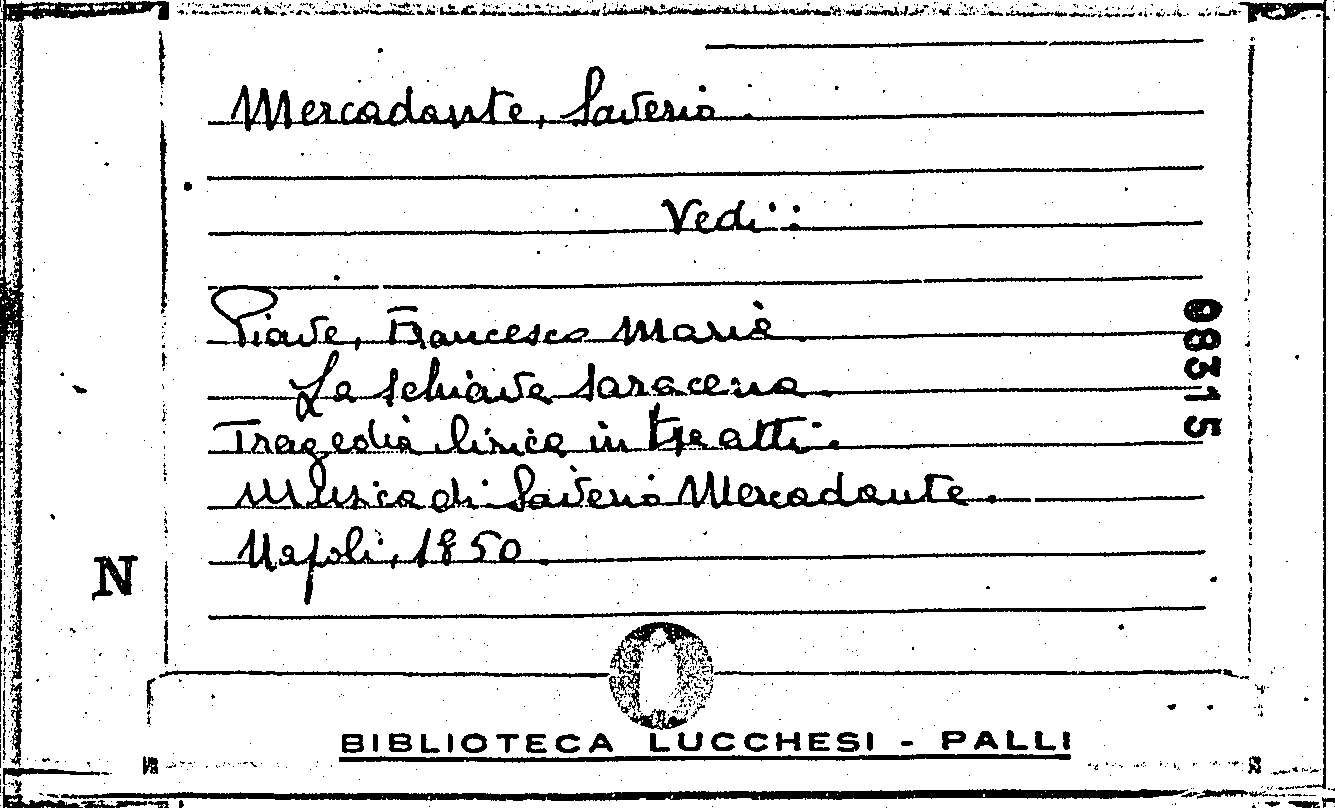 Mercadante, Saverio.
Vedi:
Piave, Francesco Maria
La schiava saracena.
Tragedia lirica in tre atti.
Musica di Saverio Mercadante.
Napoli, 1850.
08315
N
BIBLIOTECA LUCCHESI - PALLI